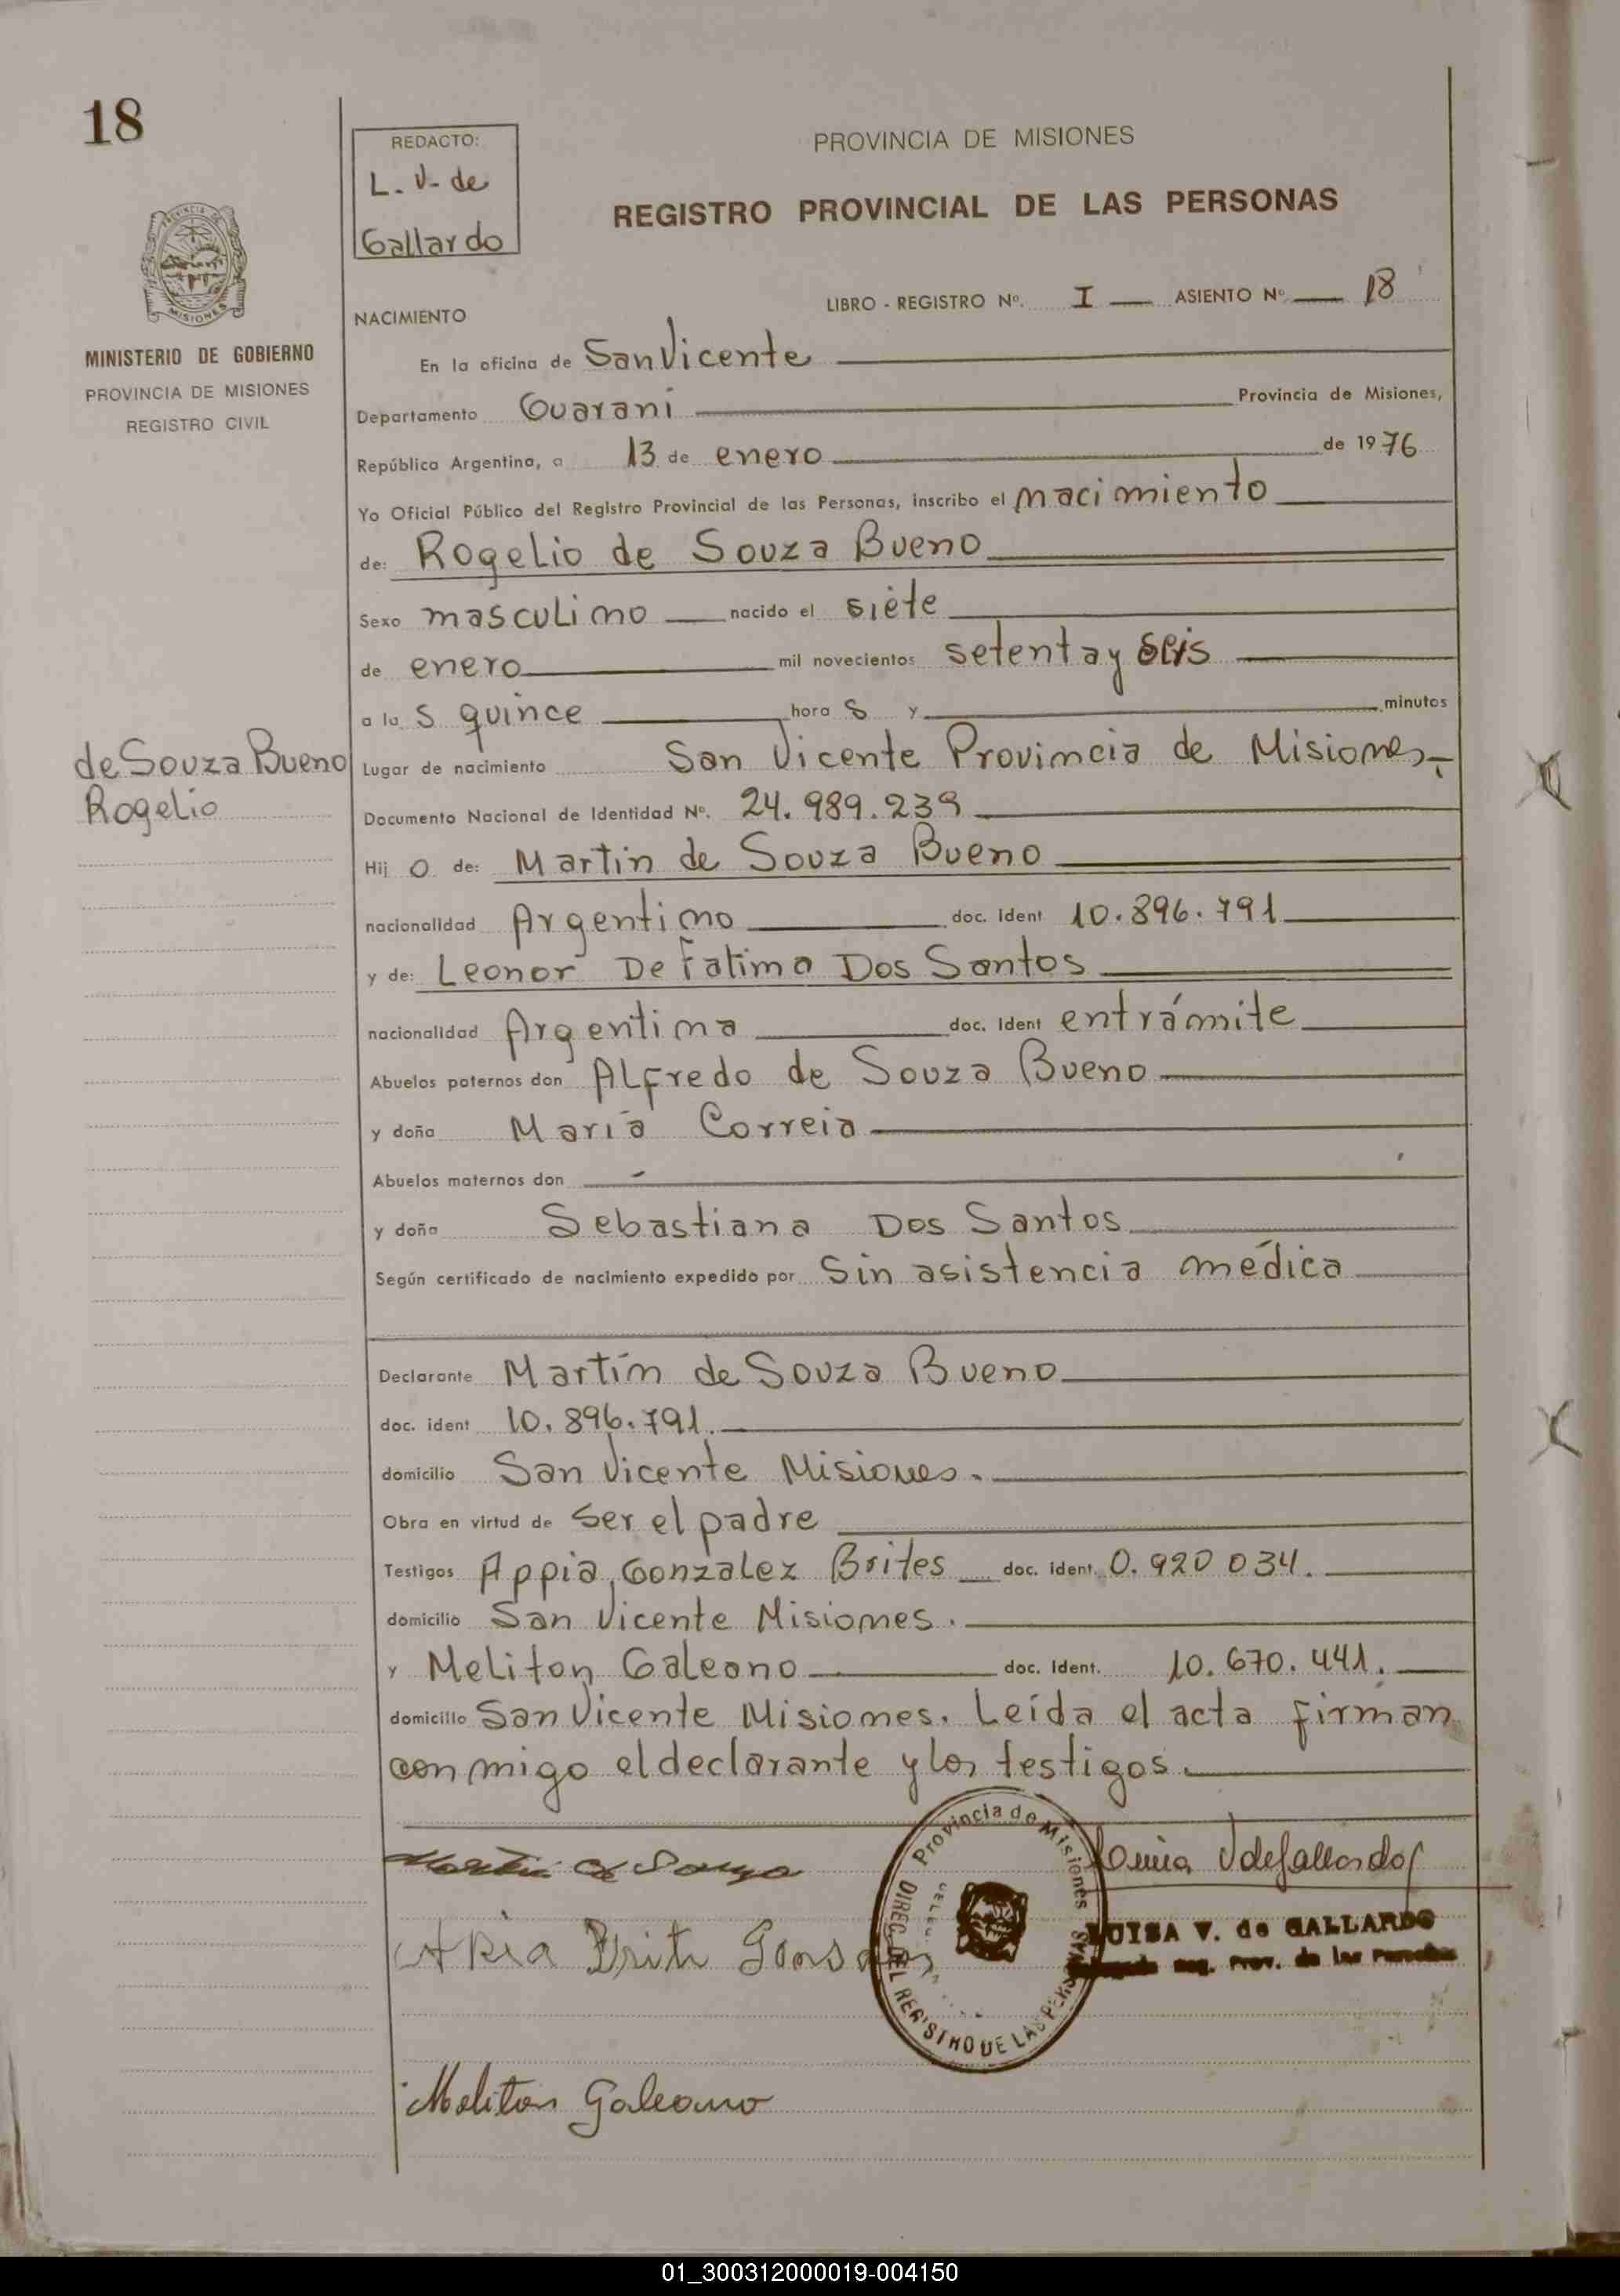 18
REDACTO:
L. V. de
Gallardo
PROVINCIA DE MISIONES
REGISTRO PROVINCIAL DE LAS PERSONAS
LIBRO - REGISTRO Nº. I ASIENTO Nº 18
NACIMIENTO
MISIONES
MINISTERIO DE GOBIERNO
PROVINCIA DE MISIONES
REGISTRO CIVIL
En la oficina de San Vicente
Departamento Guarani Provincia de Misiones,
República Argentina, a 13 de enero de 1976
Yo Oficial Público del Registro Provincial de las Personas, inscribo el nacimiento
de: Rogelio de Souza Bueno
Sexo masculino nacido el siete
de enero mil novecientos setenta y seis
a las quince horas y minutos
de Souza Bueno
Rogelio
Lugar de nacimiento San Vicente Provincia de Misiones.-
Documento Nacional de Identidad Nº. 24.989.239
Hijo de: Martin de Souza Bueno
nacionalidad Argentino doc. ident 10.896.791
y de: Leonor De Fatima Dos Santos
nacionalidad Argentina doc. Ident entrámite
Abuelos paternos don Alfredo de Souza Bueno
y doña María Correia
Abuelos maternos don
y doña Sebastiana Dos Santos
Según certificado de nacimiento expedido por Sin asistencia médica
Declarante Martín de Souza Bueno
doc. ident 10.896.791.
domicilio San Vicente Misiones.
Obra en virtud de ser el padre
Testigos Appia Gonzalez Brites doc. ident. 0.920 034.
domicilio San Vicente Misiones.
y Meliton Galeano doc. Ident. 10.670.441.
domicilio San Vicente Misiones. Leída el acta firman
conmigo el declarante y los testigos.
Martin de Souza
Provincia de Misiones
DIREC. DEL REGISTRO DE LAS PERSONAS
Luisa V de Gallardo
LUISA V. de GALLARDO
Reg. Prov. de las Personas
Apia Brite Gonsales
Meliton Galeano
01_300312000019-004150